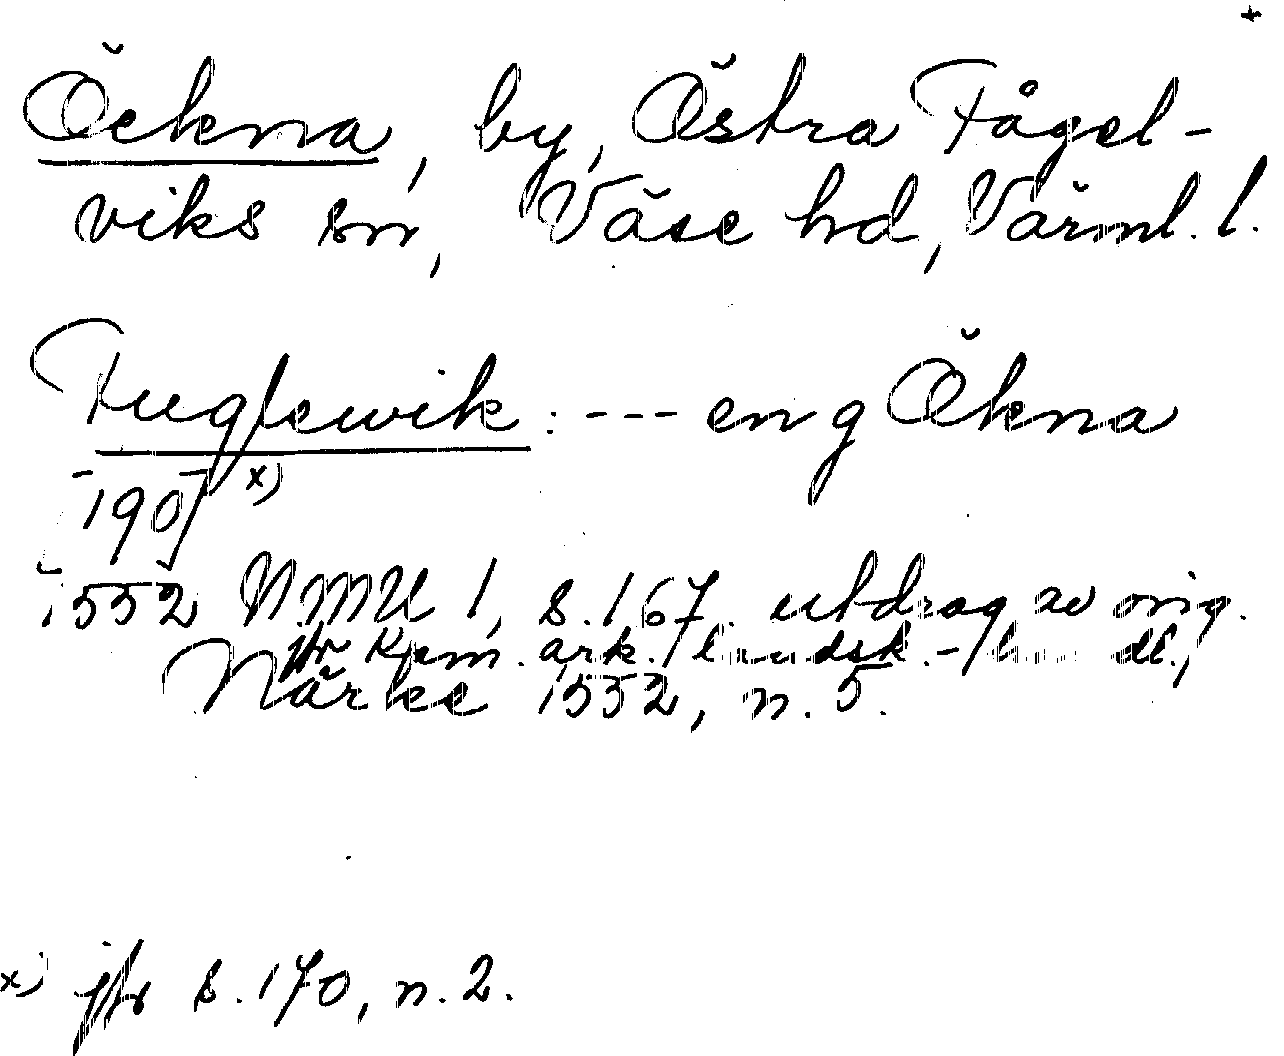 +
Öckna, by, Östra Fågel-
viks sn, Väse hd, Värml. l.
Fuglewik : --- en g Ökna
[190] x)
1552 NMU 1, s. 167. utdrag av orig.
fr Kam. ark. landsk.-handl.,
Närke 1552, n. 5.
x) jfr s. 170, n. 2.